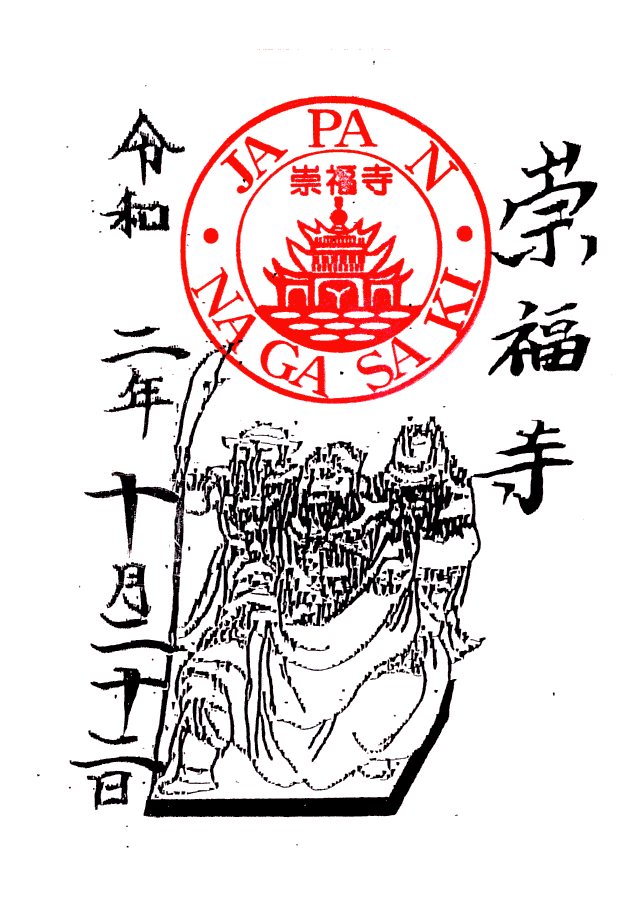 崇福寺
JAPAN
崇福寺
NAGASAKI
令和二年十月二十二日